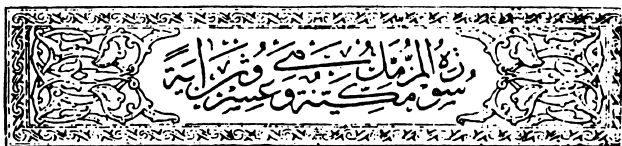 سُورَةُ الْمُزَّمِّلِ مَكِّيَّةٌ وَهِيَ عِشْرُونَ آيَةً